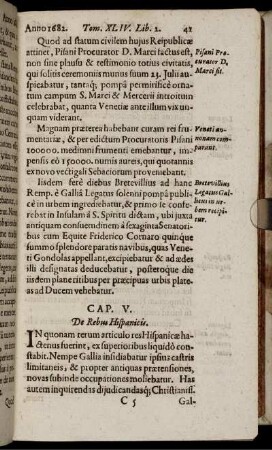 Anno 1682. Tom. XLIV. Lib. 2. 41
Quod ad statum civilem hujus Reipublicæ
attinet, Pisani Procurator D. Marci factus est,
non sine plausu & testimonio totius civitatis,
qui solitis ceremoniis munus suum 23. Julii au-
spicabatur, tantaq; pompâ permisitticè or-
natum campum S. Marci & Mercerii introitum
celebrabat, quanta Venetiæ ante illum vix un-
quam viderant.
Pisani Pro-
curator D.
Marci fit.
Magnam præterea habebant curam rei fru-
mentariæ, & per edictum Procuratoris Pisani
100000. medimni frumenti emebantur, im-
pensis eò 150000. numis aureis, qui quotannis
ex novo vectigali Sebaciorum proveniebant.
Veneti an-
nonam com-
parant.
Iisdem ferè diebus Bretevillius ad hanc
Remp. è Galliâ Legatus solenni pompâ publi-
cè in urbem ingrediebatur, & primo se confe-
rebat in Insulam à S. Spiritu dictam, ubi juxta
antiquam consuetudinem à sexaginta Senatori-
bus cum Equite Friderico Cornaro quinque
summo splendore paratis navibus, quas Vene-
ti Gondolas appellant, excipiebatur & ad ædes
illi designatas deducebatur, postero que die
iisdem planè ritibus per præcipuas urbis plate-
as ad Ducem vehebatur.
Bretevillius
Legatus Gal-
liens in ur-
bem recipi-
tur.
CAP. V.
De Rebus Hispanicis.
IN quonam rerum articulo res Hispanicæ ha-
ctenus fuerint, ex superioribus liquidò con-
stabit. Nempe Gallia insidiabatur ipsius castris
limitaneis, & propter antiquas prætensiones,
novas subinde occupationes moliebatur. Has
autem inquirendas dijudicandasq; Christianiss.
C 5 Gal-